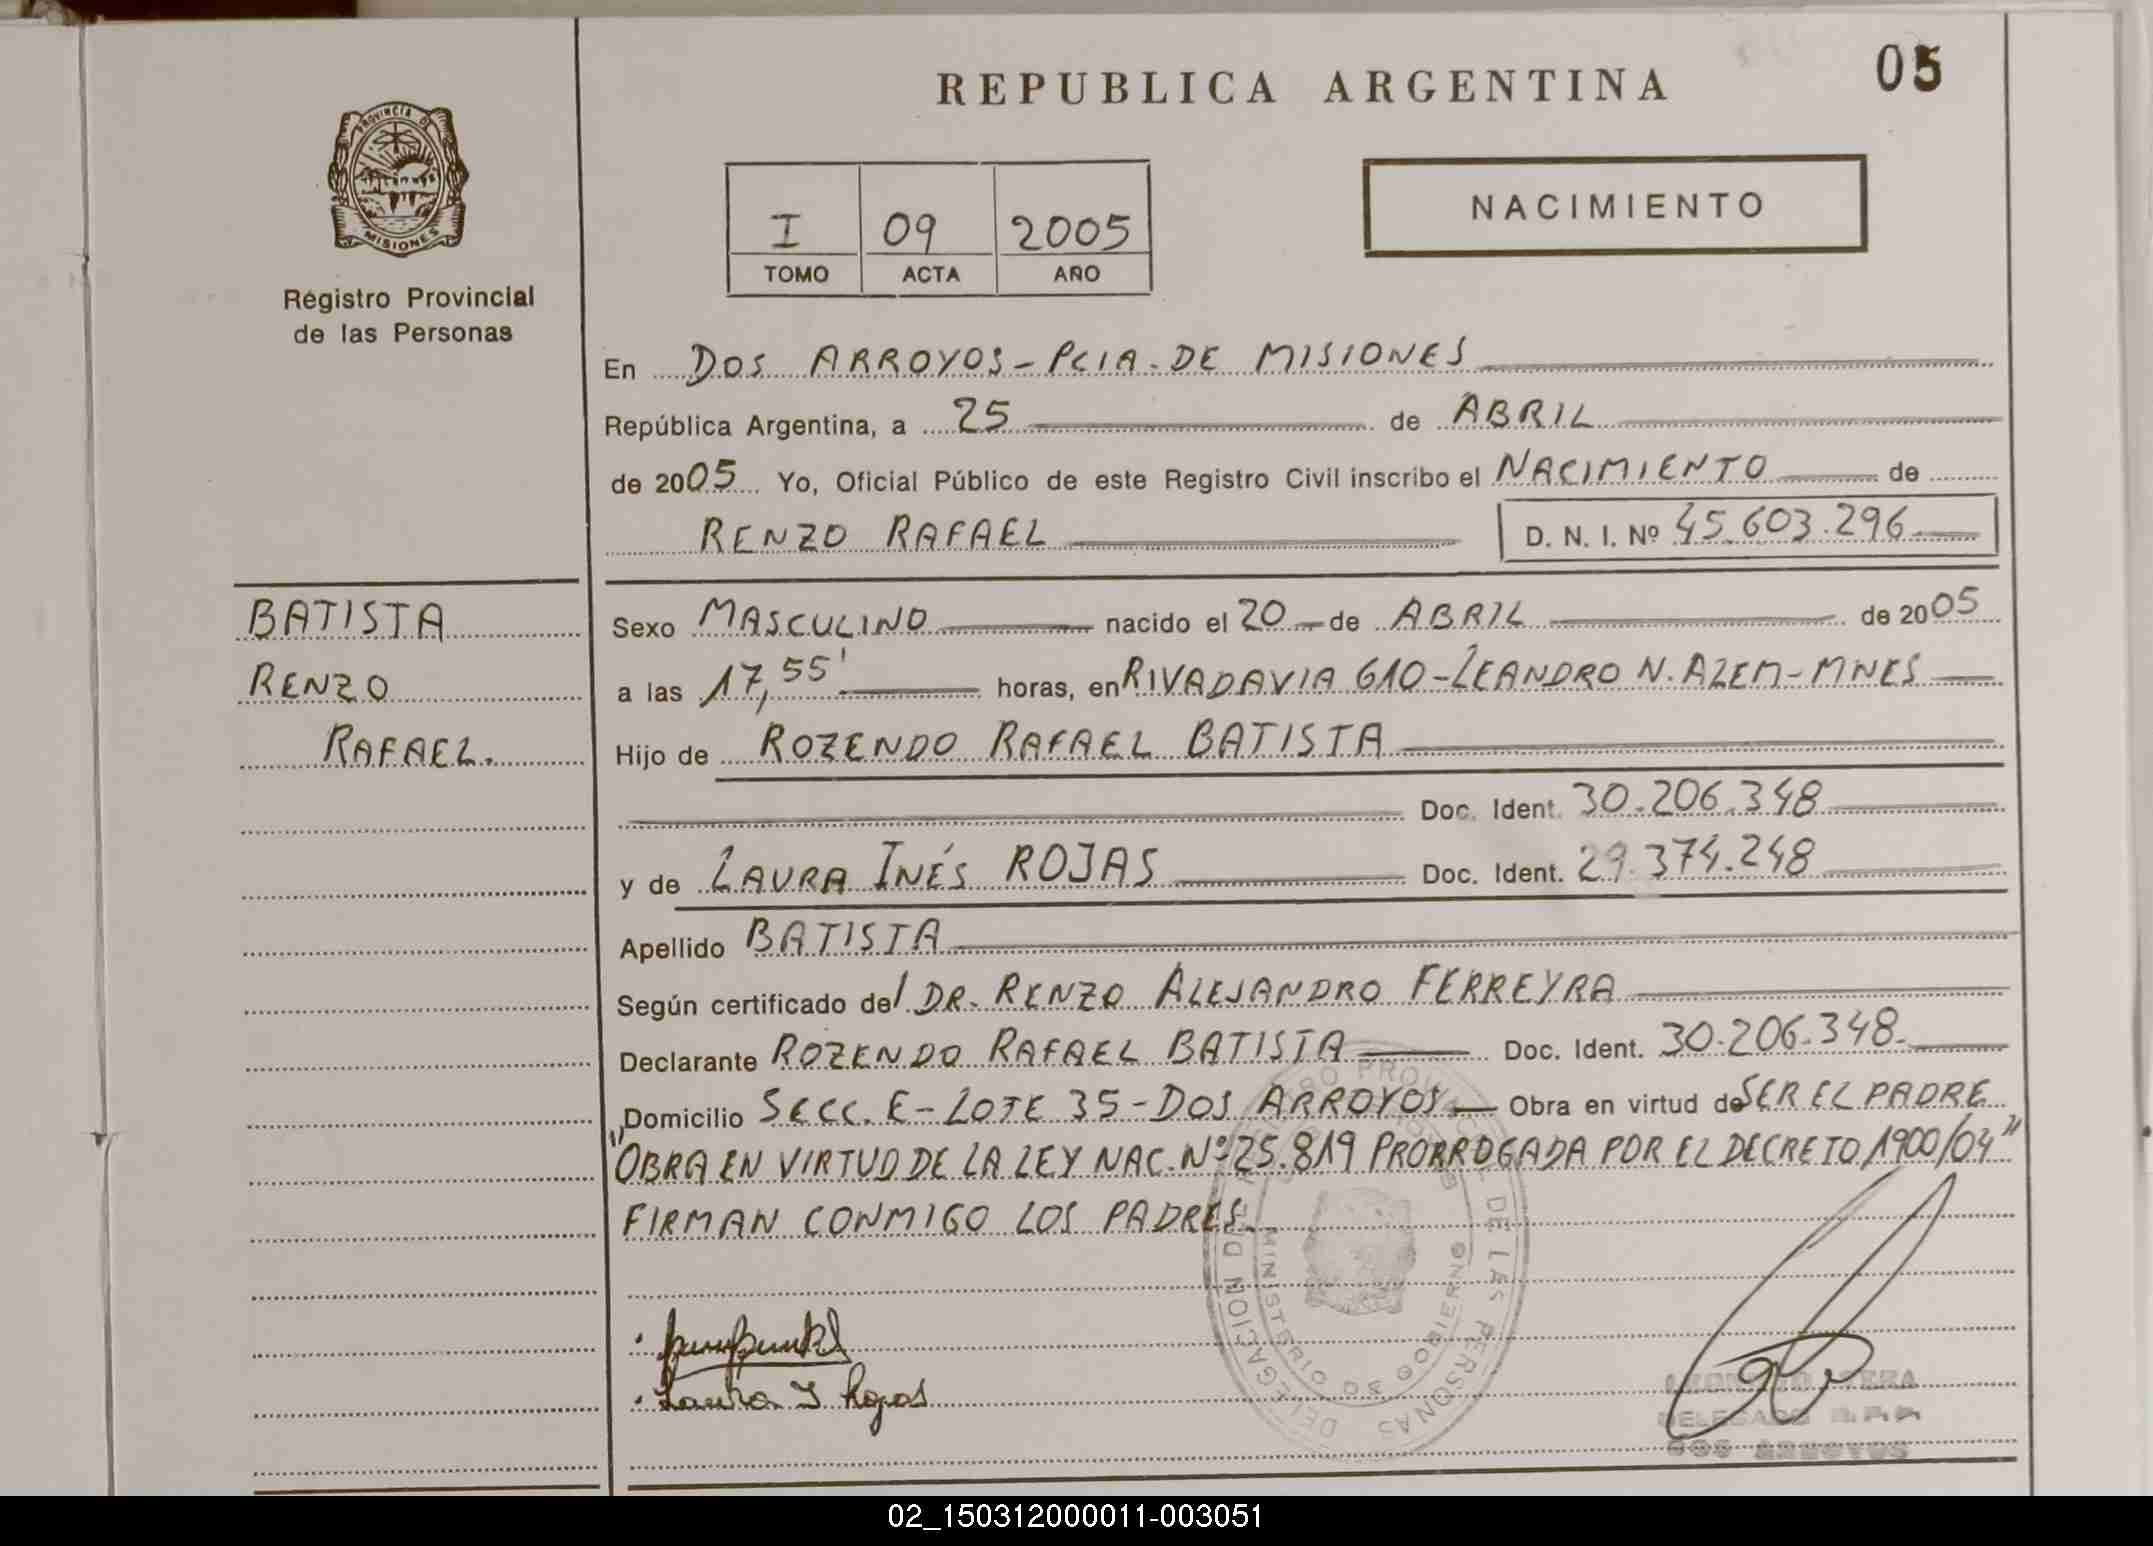 REPUBLICA ARGENTINA
05
PROVINCIA DE
MISIONES
Registro Provincial
de las Personas
I 09 2005
TOMO ACTA AÑO
NACIMIENTO
En DOS ARROYOS - PCIA. DE MISIONES
República Argentina, a 25 de ABRIL
de 2005 Yo, Oficial Público de este Registro Civil inscribo el NACIMIENTO de
RENZO RAFAEL D. N. I. Nº 45.603.296
BATISTA
RENZO
RAFAEL.
Sexo MASCULINO nacido el 20 de ABRIL de 2005
a las 17,55' horas, en RIVADAVIA 610 - LEANDRO N. ALEM - MNES
Hijo de ROZENDO RAFAEL BATISTA
Doc. Ident. 30.206.348
y de LAURA INÉS ROJAS Doc. Ident. 29.374.248
Apellido BATISTA
Según certificado del DR. RENZO ALEJANDRO FERREYRA
Declarante ROZENDO RAFAEL BATISTA Doc. Ident. 30.206.348.
Domicilio SECC. E - LOTE 35 - DOS ARROYOS Obra en virtud de SER EL PADRE
"OBRA EN VIRTUD DE LA LEY NAC. Nº 25.819 PRORROGADA POR EL DECRETO 1900/04"
FIRMAN CONMIGO LOS PADRES.
Laura I Rojas
DELEGACION DEL REGISTRO PROVINCIAL DE LAS PERSONAS
MINISTERIO DE GOBIERNO
DELEGADO R.P.P.
DOS ARROYOS
02_150312000011-003051